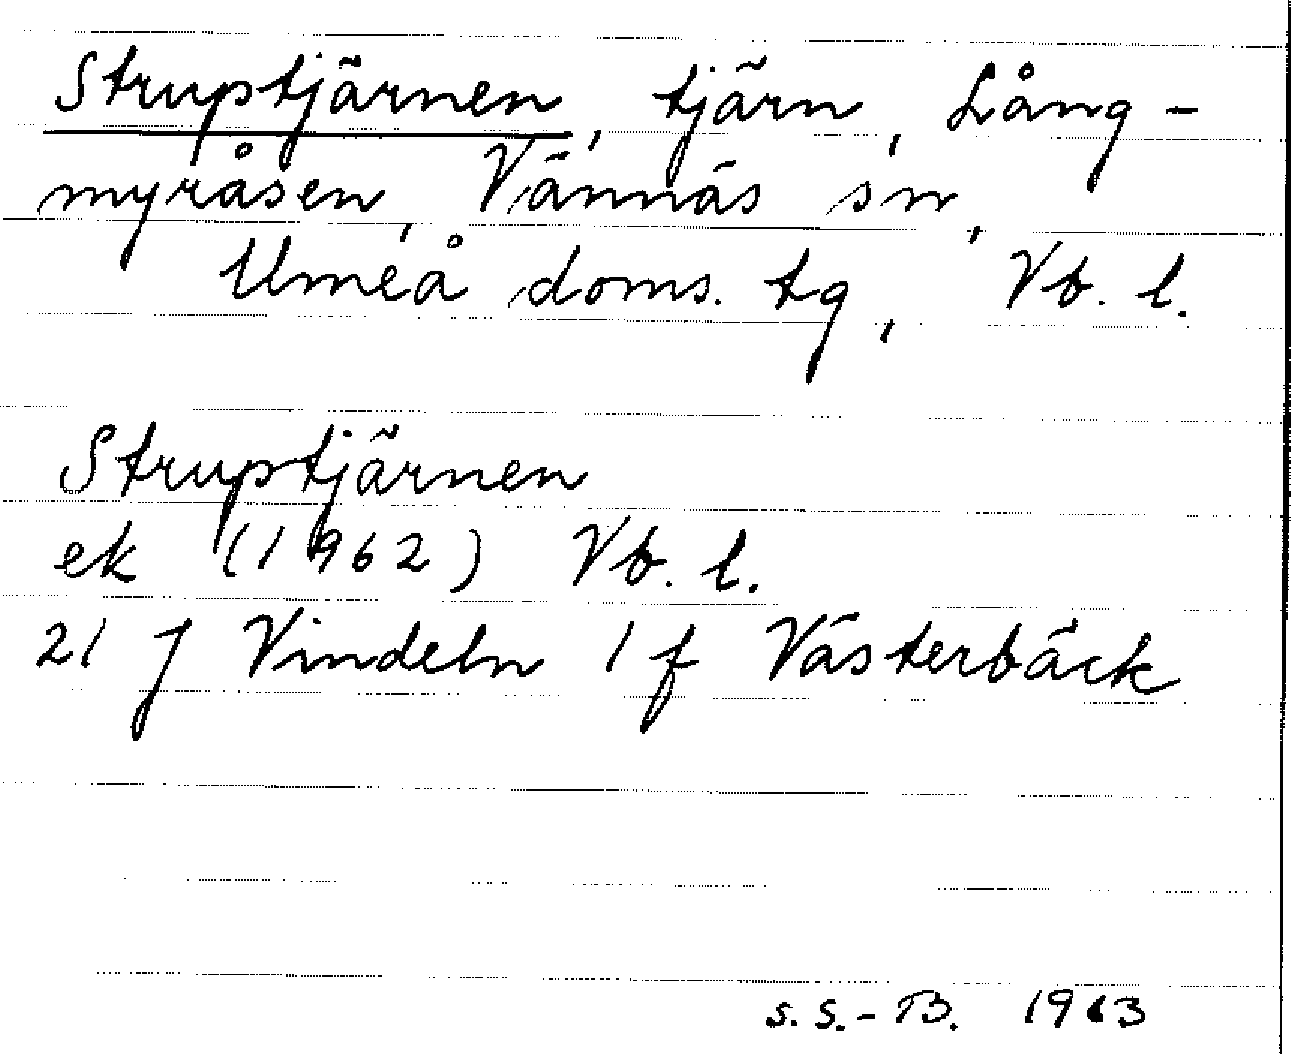 Struptjärnen, tjärn, Lång-
myråsen, Vännäs sn,
Umeå doms. tg, Vb. l.
Struptjärnen
ek (1962) Vb. l.
21 J Vindeln 1 f Västerbäck
s. s.-B. 1963